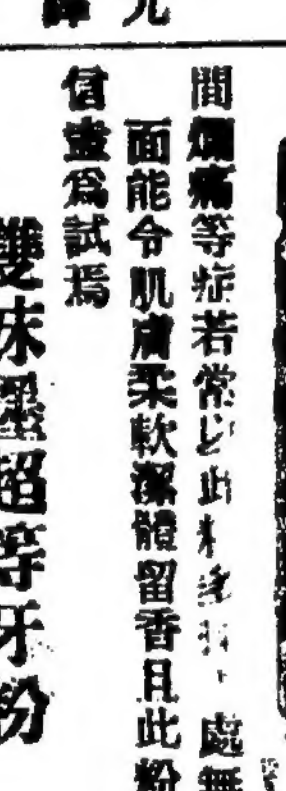 間爛痛等症若常以此粉 處無
面能令肌膚柔軟潔體留香且此粉
信盍爲試焉
雙妹嚜超等牙粉